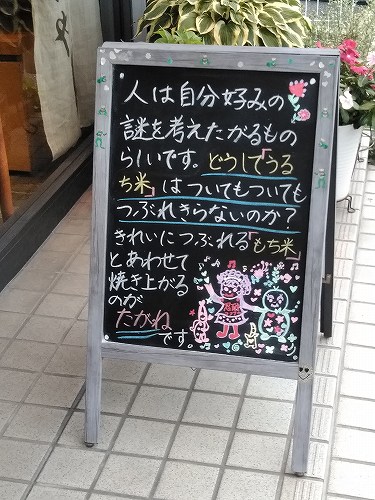 人は自分好みの
謎を考えたがるもの
らしいです。どうして「うる
ち米」はついてもついても
つぶれきらないのか？
きれいにつぶれる「もち米」
とあわせて
焼き上がる
のが
たがねです。